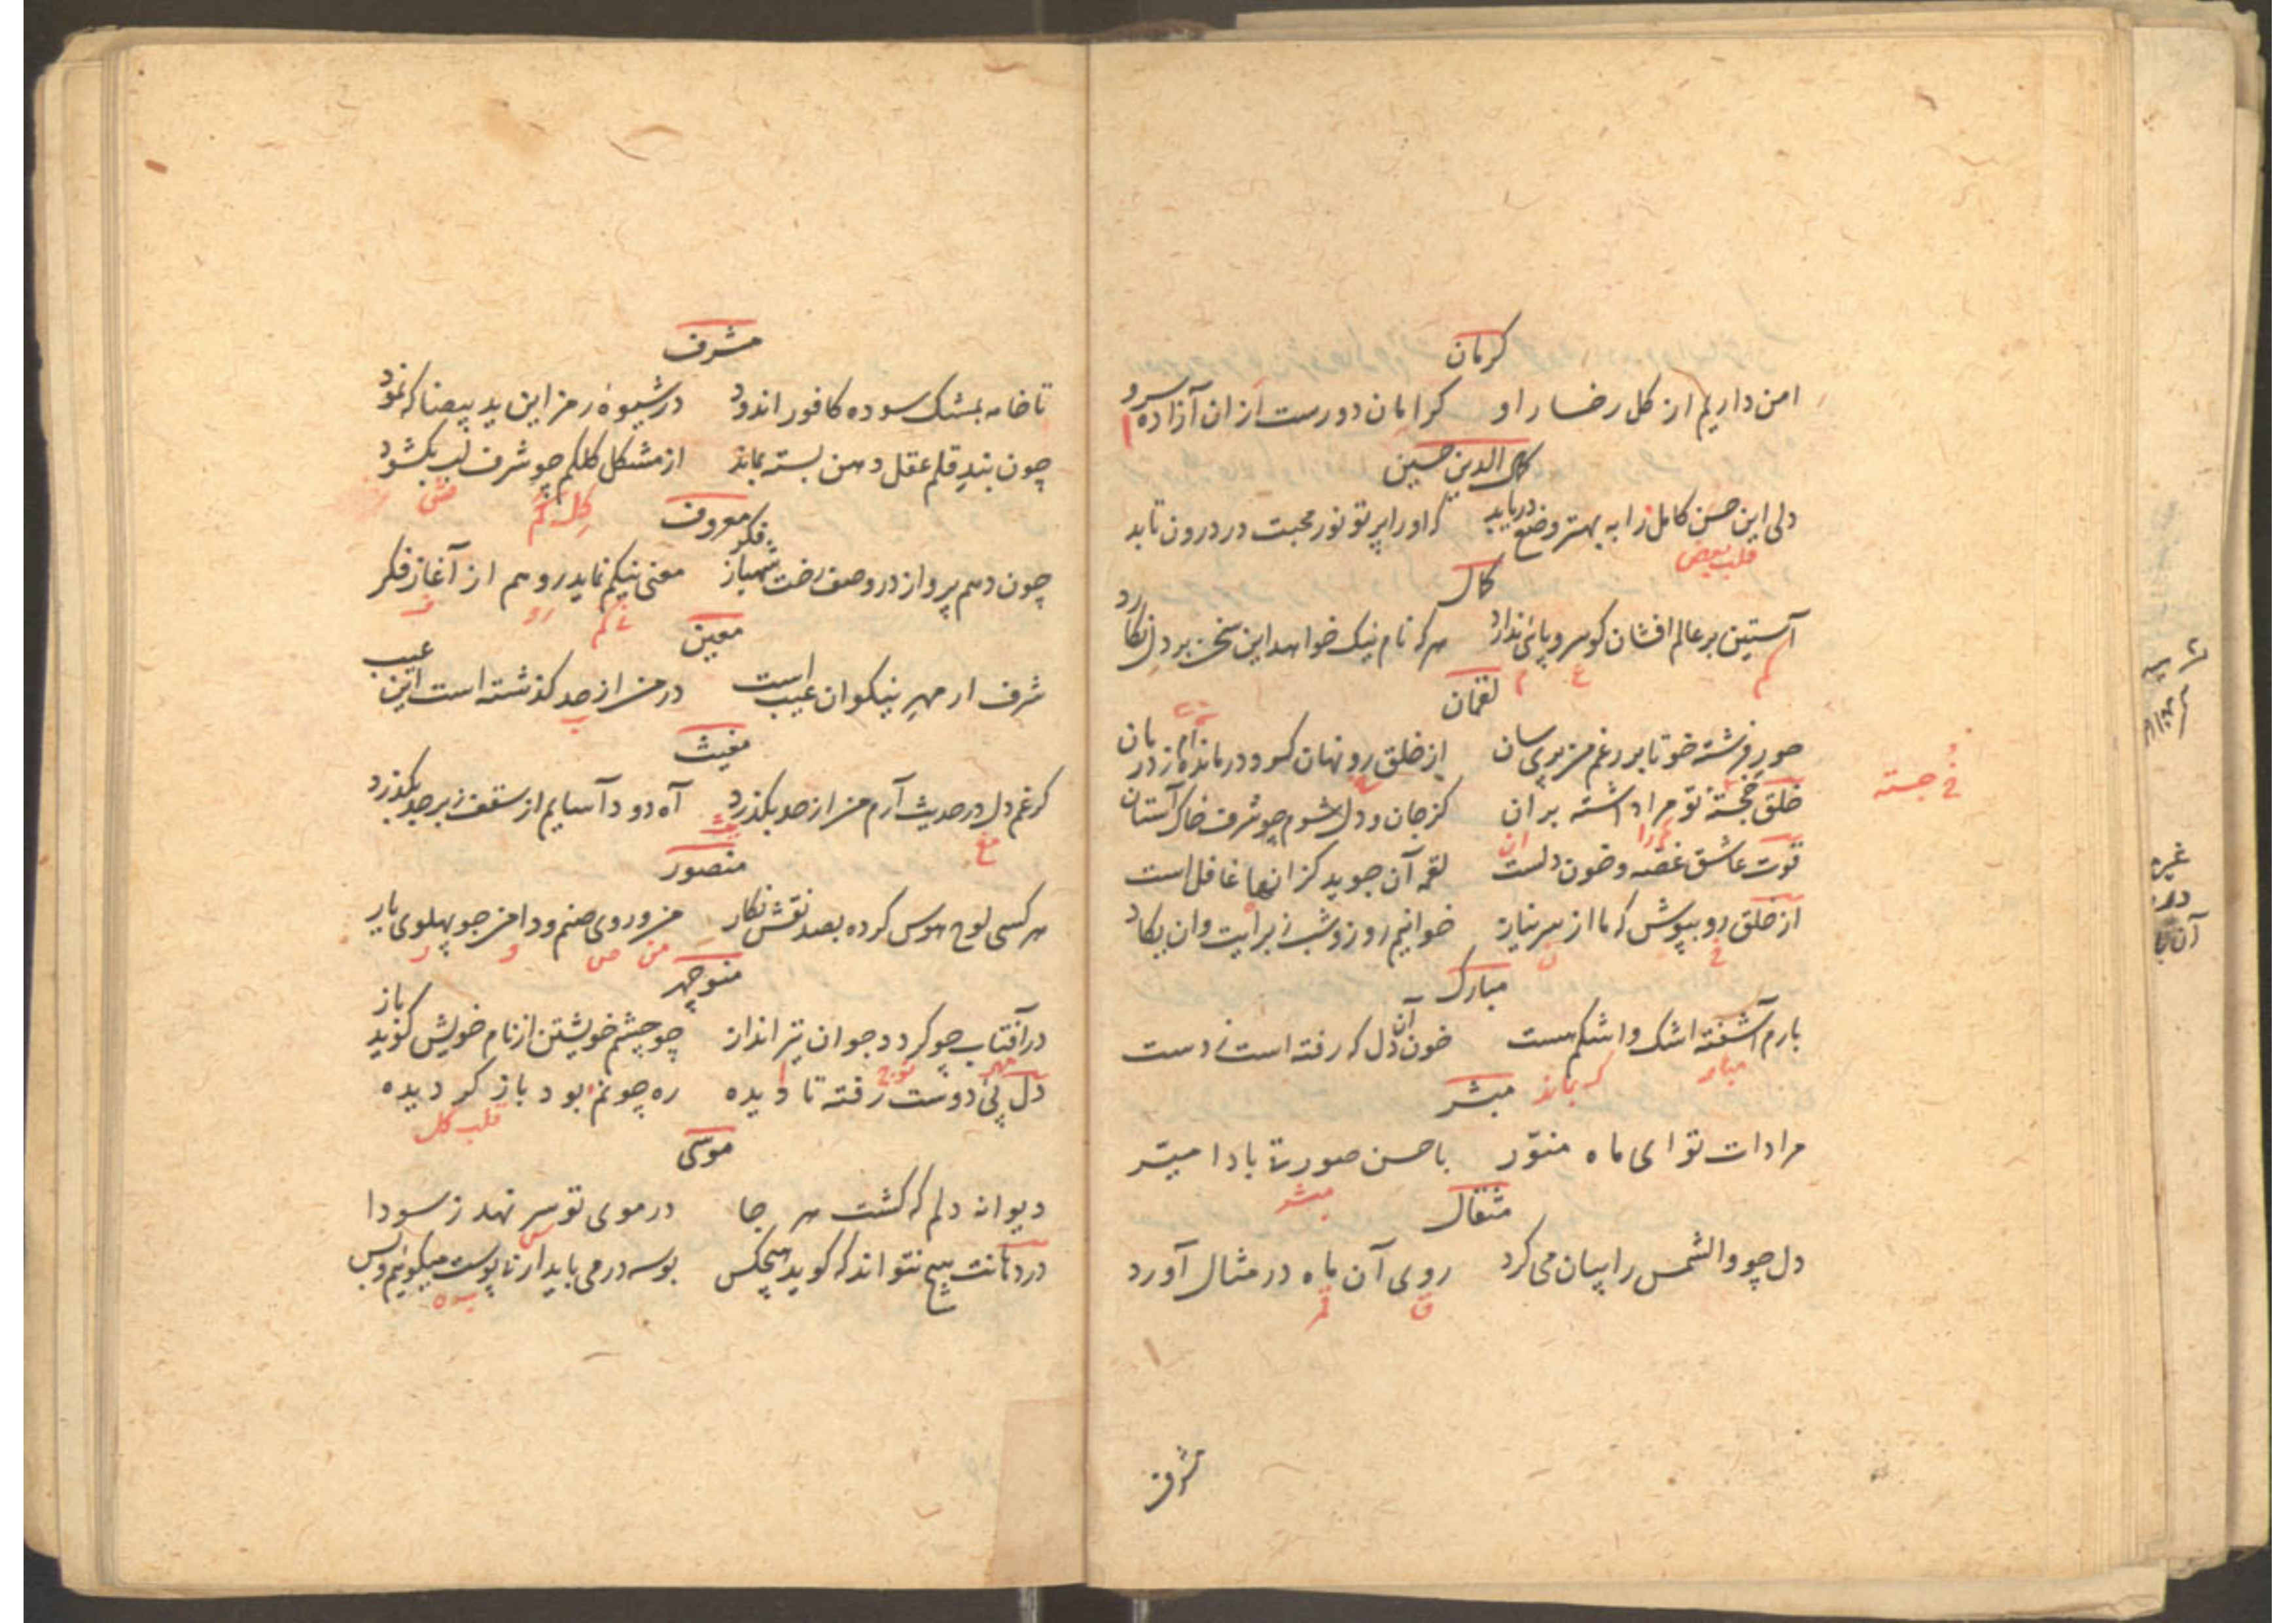 کرمان
امن داریم از کل رخسار او کرامان دورست از ان آزاده سرو
کمال الدین حسین
دلی این حسن کامل را به بهتر وضع دریابد که اورا پرتو نور محبت در درون تابد
قلب بعض
کمال
آستین بر عالم افشان کو سر و پائی ندارد هر که نام نیک خواهد این سخن بر دل نکارد
لقمان
حور فرشته خو تا بر رغم من پری سان از خلق رو نهان کرد درمانده‌ام ز درمان
خلق خجسته تو مرا داشته بر ان کز جان و دل شوم چو شرف خاک آستان
خ جسته
قوت عاشق غصه و خون دلست لقمه آن جوید کز انها غافل است
از خلق رو بپوش که ما از سر نیاز خوانیم روز و شب ز برایت وان یکاد
مبارک
بارم آشفته اشک و اشکم هست خون آن دل که رفته است ز دست
مبشر
مرادات تو ای ماه منوّر با حسن صورتت بادا میسّر
مبشر
مثقال
دل چو والشمس را بیان می کرد روی آن ماه در مثال آورد
ق قمر
شرف
مشرف
تا خامه بمشک سوده کافور اندود در شیوهٔ رمز این ید بیضا که نمود
چون بند قلم عقل دهن بسته بماند از مشکل کلکم چو شرف لب بکشود
معروف
چون دهم پرواز در وصف رخت شهباز فکر معنی نیکم نماید رو هم از آغاز فکر
معین
شرف ار مهر نیکوان عیب است در من از حد کذشته است این عیب
مغیث
کر غم دل در حدیث آرم من از حد بکذرد آه دود آسایم از سقف زبرجد بکذرد
منصور
هر کسی لوح هوس کرده بصد نقش نکار من و روی صنم و دامن جو پهلوی یار
من ص و ر
منوچهر
در آفتاب چو کردد جوان تیر انداز چو چشم خویشتن از نام خویش کوید باز
دل پی دوست رفته تا دیده ره چو نم بود باز کردیده
قلب کل
موسی
دیوانه دلم که کشت هر جا در موی تو سر نهد ز سودا
در دهانت هیچ نتواند که کوید هیچکس بوسه در می باید ار نا پوست میکویم و بس